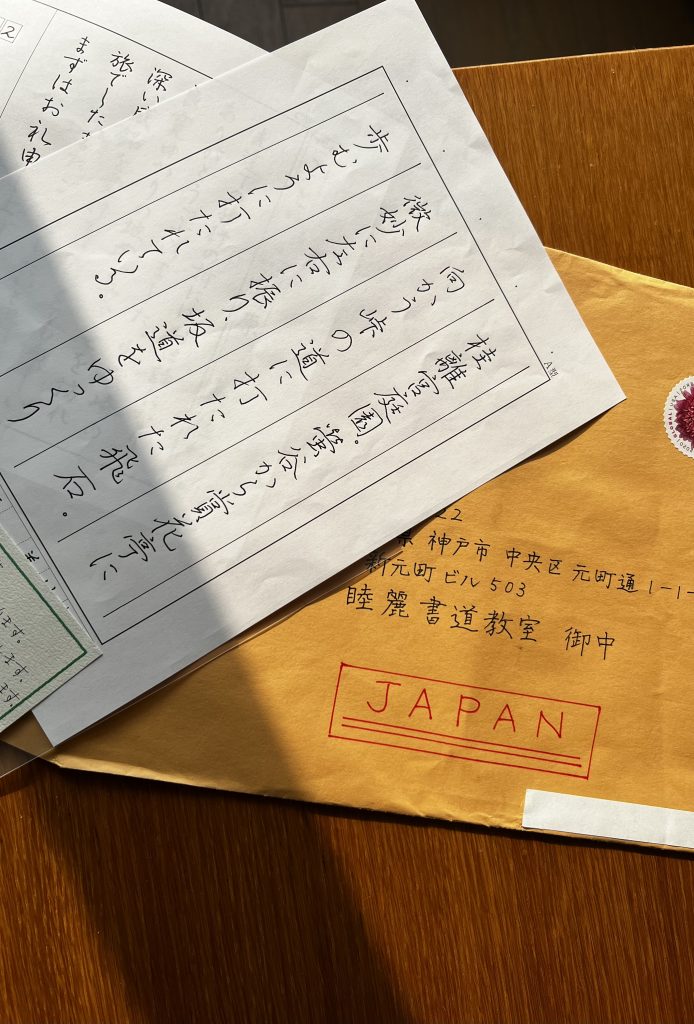 桂離宮庭園。螢谷から賞花亭に
向かう峠の道に打たれた飛石。
微妙に左右に振り、坂道をゆっくり
歩むように打たれている。
A型
2
深い
旅でした
まずはお礼申
ます。
ます。
ます。
22
県 神戸市 中央区 元町通 1-1-
新元町ビル 503
睦麗書道教室 御中
JAPAN